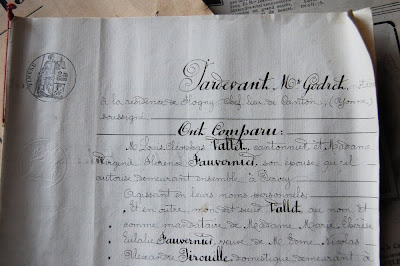 Pardevant Me Godret,
à la résidence de Flogny chef-lieu de Canton, (Yonne)
soussigné
Ont Comparu:
M. Louis Vallet, cantonnier, et Madame
Fauvernier, son épouse, qu'il
autorise demeurant ensemble à Percey
Agissant en leurs noms personnels,
Et en outre, mon dit sieur Vallet, au nom et
comme mandataire de Madame Marie Thérèse
Eulalie Fauvernier, veuve de M. Edme Nicolas
Alexandre Girouille, domestique demeurant à